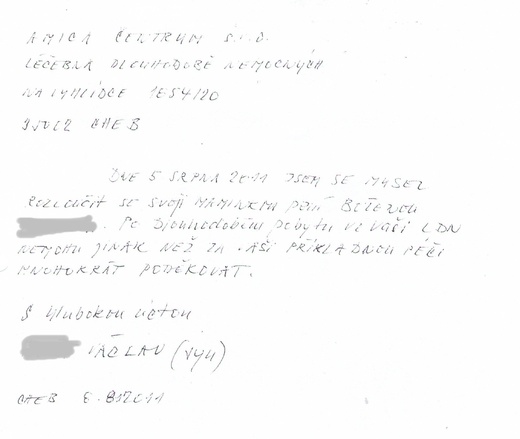 AMICA CENTRUM S.R.O.
LÉČEBNA DLOUHODOBĚ NEMOCNÝCH
NA VYHLÍDCE 1654/20
CHEB
DNE 5 SRPNA 2011 JSEM SE MUSEL
ROZLOUČIT SE SVOJÍ MAMINKOU PANÍ BOŽENOU
. Po Dlouhodobém pobytu ve Vaší LDN
NEMOHU JINAK NEŽ ZA VAŠI PŘÍKLADNOU PÉČI
MNOHOKRÁT PODĚKOVAT.
S Hlubokou úctou
VÁCLAV (syn)
CHEB 8.